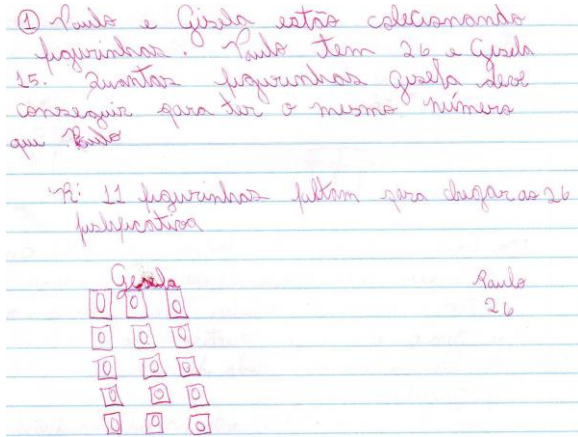 ① Paulo e Gisela estão colecionando
figurinhas. Paulo tem 26 e Gisela
15. Quantas figurinhas Gisela deve
conseguir para ter o mesmo número
que Paulo
R: 11 figurinhas faltam para chegar as 26
justificativa
Gisela
Paulo
26